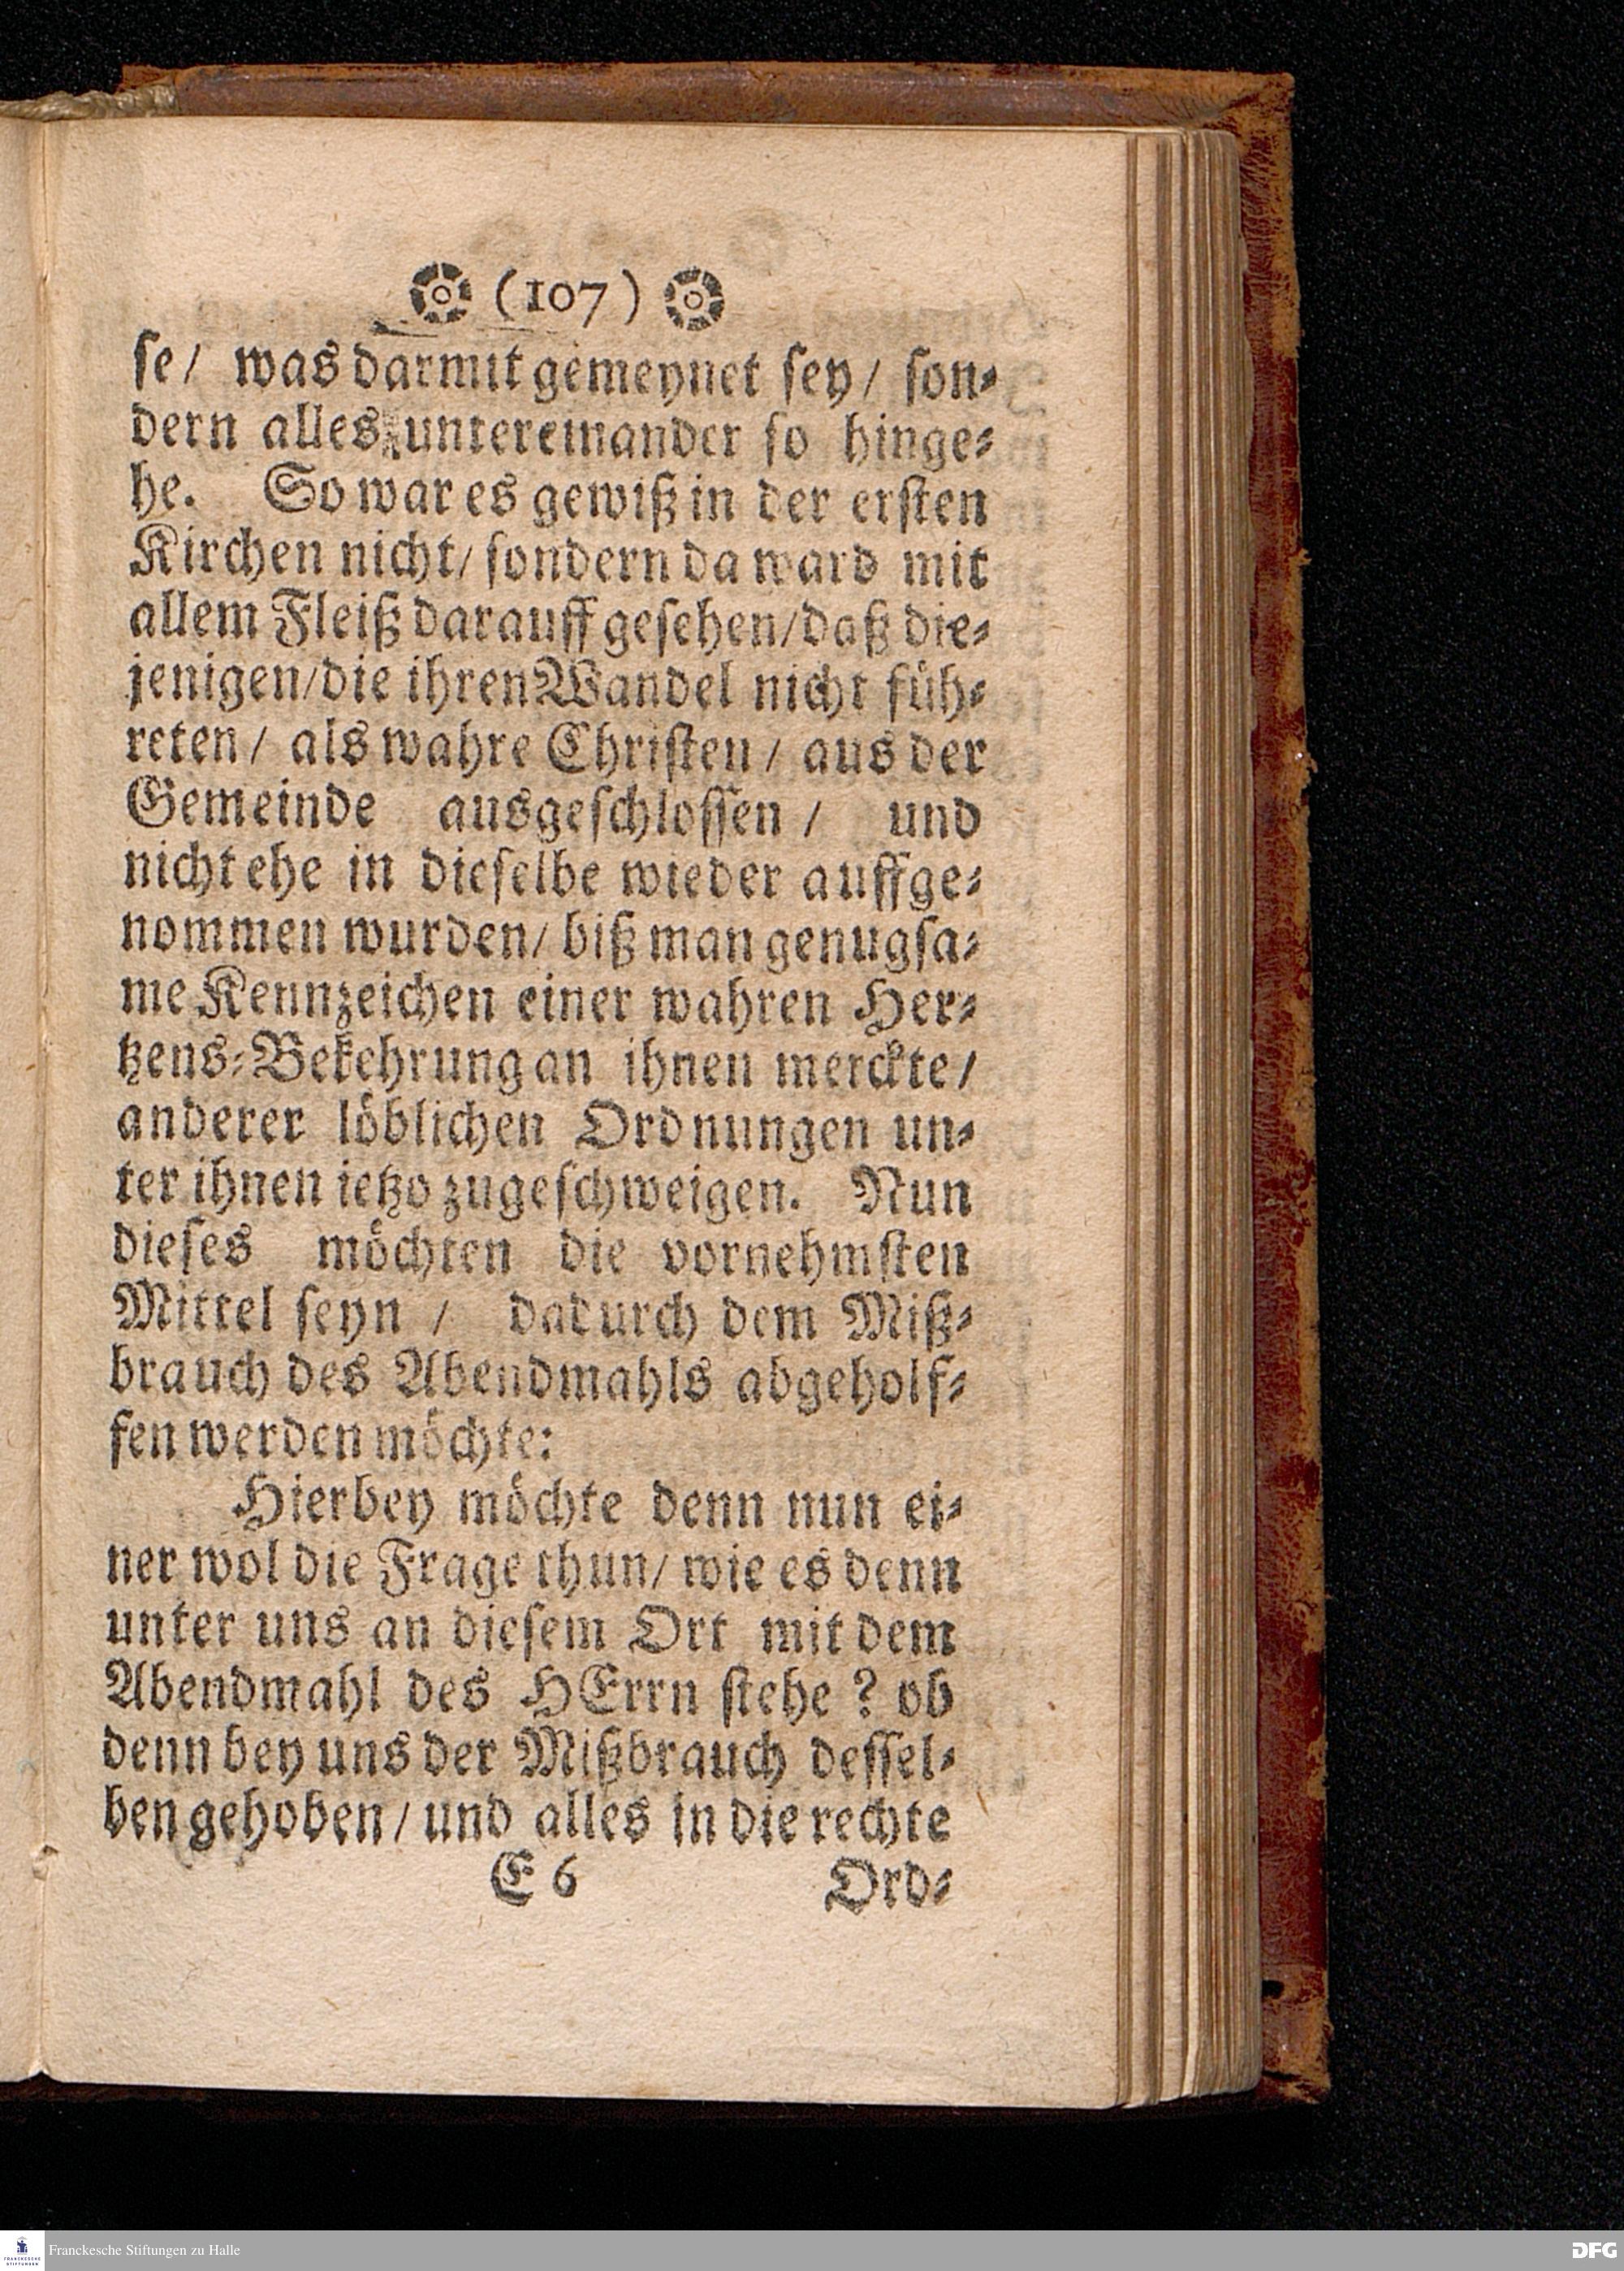 (107)
se/ was darmit gemeynet sey/ son-
dern alles untereinander so hinge-
he. So war es gewiß in der ersten
Kirchen nicht/ sondern da ward mit
allem Fleiß darauff gesehen/ daß die-
jenigen/ die ihren Wandel nicht füh-
reten/ als wahre Christen/ aus der
Gemeinde ausgeschlossen/ und
nicht ehe in dieselbe wieder auffge-
nommen wurden/ biß man genugsa-
me Kennzeichen einer wahren Her-
tzens-Bekehrung an ihnen merckte/
anderer löblichen Ordnungen un-
ter ihnen ietzo zugeschweigen. Nun
dieses möchten die vornehmsten
Mittel seyn/ dadurch dem Miß-
brauch des Abendmahls abgeholf-
fen werden möchte:
Hierbey möchte denn nun ei-
ner wol die Frage thun/ wie es denn
unter uns an diesem Ort mit dem
Abendmahl des HErrn stehe? ob
denn bey uns der Mißbrauch dessel-
ben gehoben/ und alles in die rechte
E 6 Ord-
FRANCKESCHE STIFTUNGEN
Franckesche Stiftungen zu Halle
DFG